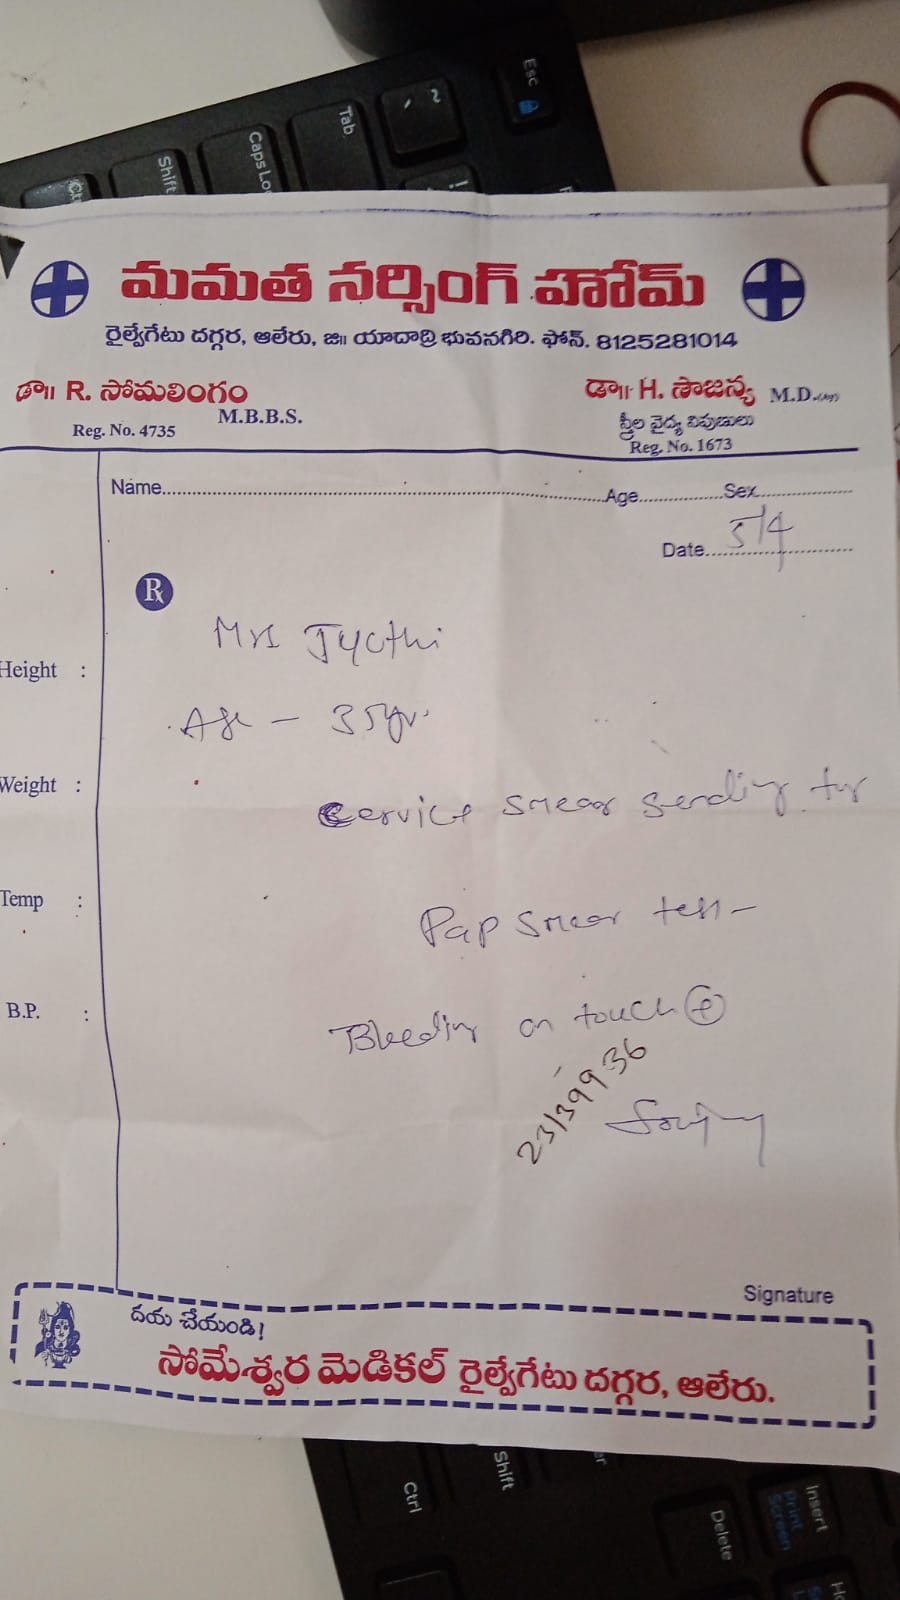 మమత నర్సింగ్ హోమ్
రైల్వేగేటు దగ్గర, ఆలేరు, జి॥ యాదాద్రి భువనగిరి. ఫోన్. 8125281014
డా॥ R. సోమలింగం
M.B.B.S.
Reg. No. 4735
డా॥ H. సౌజన్య M.D.
స్త్రీల వైద్య నిపుణులు
Reg. No. 1673
Name Age Sex
Date 5/4
Rx
Mrs Jyothi
Height :
Age - 35yr.
Weight :
Cervice smear sending for
Temp :
Pap smear test -
B.P. :
Bleeding on touch +
23139936
Signature
దయ చేయండి!
సోమేశ్వర మెడికల్ రైల్వేగేటు దగ్గర, ఆలేరు.
Esc
~
`
!
Tab
Caps Lo
Shift
Ctrl
Shift
Delete
Insert
Print
Screen